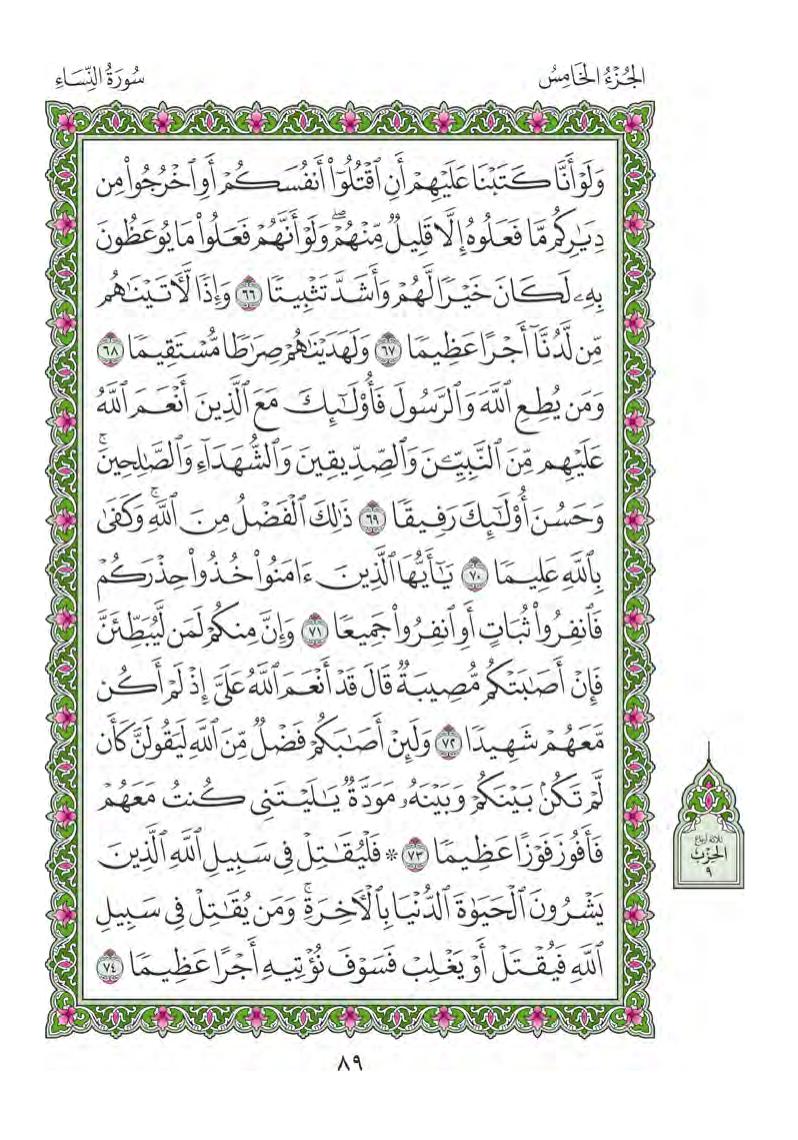 الجُزْءُ الخَامِسُ
سُورَةُ النِّسَاءِ
وَلَوْ أَنَّا كَتَبْنَا عَلَيْهِمْ أَنِ ٱقْتُلُوٓاْ أَنفُسَكُمْ أَوِ ٱخْرُجُواْ مِن
دِيَٰرِكُم مَّا فَعَلُوهُ إِلَّا قَلِيلٌ مِّنْهُمْۖ وَلَوْ أَنَّهُمْ فَعَلُواْ مَا يُوعَظُونَ
بِهِۦ لَكَانَ خَيْرًا لَّهُمْ وَأَشَدَّ تَثْبِيتًا ٦٦ وَإِذًا لَّأٓتَيْنَٰهُم
مِّن لَّدُنَّآ أَجْرًا عَظِيمًا ٦٧ وَلَهَدَيْنَٰهُمْ صِرَٰطًا مُّسْتَقِيمًا ٦٨
وَمَن يُطِعِ ٱللَّهَ وَٱلرَّسُولَ فَأُوْلَٰٓئِكَ مَعَ ٱلَّذِينَ أَنْعَمَ ٱللَّهُ
عَلَيْهِم مِّنَ ٱلنَّبِيِّۦنَ وَٱلصِّدِّيقِينَ وَٱلشُّهَدَآءِ وَٱلصَّٰلِحِينَۚ
وَحَسُنَ أُوْلَٰٓئِكَ رَفِيقًا ٦٩ ذَٰلِكَ ٱلْفَضْلُ مِنَ ٱللَّهِۚ وَكَفَىٰ
بِٱللَّهِ عَلِيمًا ٧٠ يَٰٓأَيُّهَا ٱلَّذِينَ ءَامَنُواْ خُذُواْ حِذْرَكُمْ
فَٱنفِرُواْ ثُبَاتٍ أَوِ ٱنفِرُواْ جَمِيعًا ٧١ وَإِنَّ مِنكُمْ لَمَن لَّيُبَطِّئَنَّ
فَإِنْ أَصَٰبَتْكُم مُّصِيبَةٌ قَالَ قَدْ أَنْعَمَ ٱللَّهُ عَلَيَّ إِذْ لَمْ أَكُن
مَّعَهُمْ شَهِيدًا ٧٢ وَلَئِنْ أَصَٰبَكُمْ فَضْلٌ مِّنَ ٱللَّهِ لَيَقُولَنَّ كَأَن
لَّمْ تَكُنۢ بَيْنَكُمْ وَبَيْنَهُۥ مَوَدَّةٌ يَٰلَيْتَنِي كُنتُ مَعَهُمْ
فَأَفُوزَ فَوْزًا عَظِيمًا ٧٣ ۞ فَلْيُقَٰتِلْ فِي سَبِيلِ ٱللَّهِ ٱلَّذِينَ
يَشْرُونَ ٱلْحَيَوٰةَ ٱلدُّنْيَا بِٱلْأٓخِرَةِۚ وَمَن يُقَٰتِلْ فِي سَبِيلِ
ٱللَّهِ فَيُقْتَلْ أَوْ يَغْلِبْ فَسَوْفَ نُؤْتِيهِ أَجْرًا عَظِيمًا ٧٤
ثلاثة أرباع
الحِزْبُ
٩
٨٩